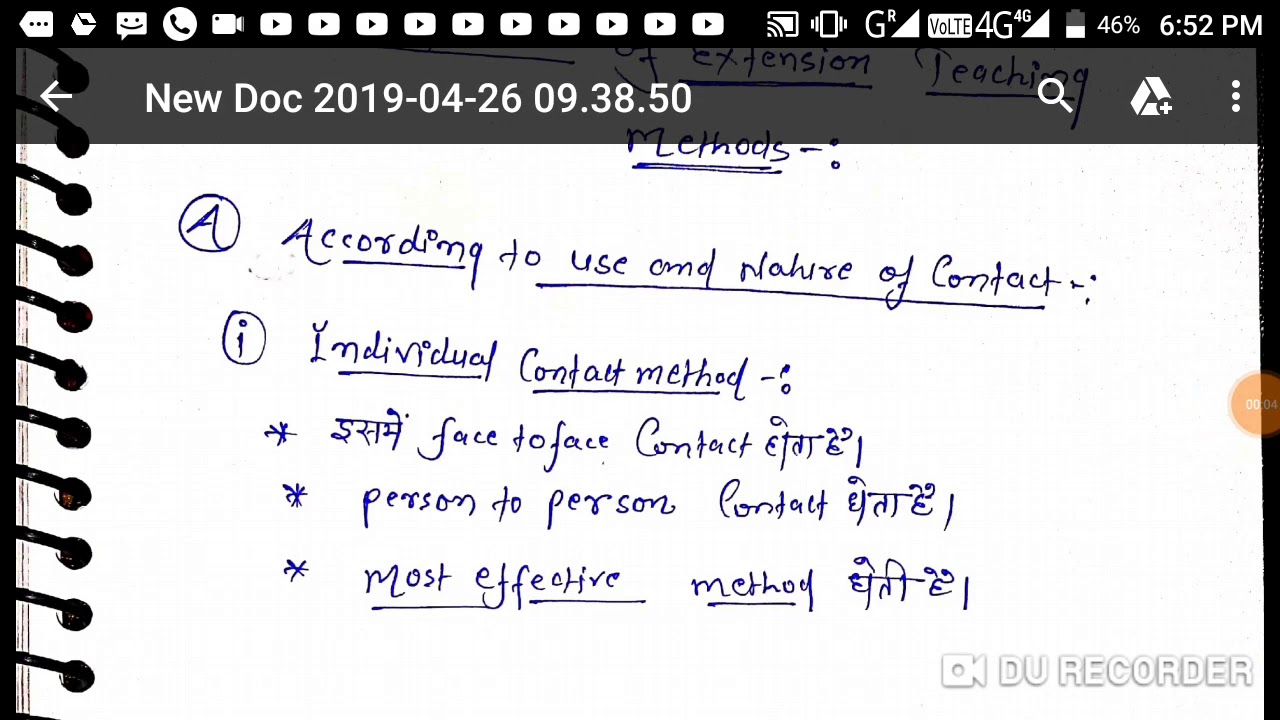 GR VoLTE 4G 4G 46% 6:52 PM
of Extension Teaching
New Doc 2019-04-26 09.38.50
Methods -:
A According to use and Nature of Contact -:
i Individual Contact method -:
* इसमें face to face Contact होता है।
* person to person Contact होता है।
* most effective method होती है।
00:04
DU RECORDER